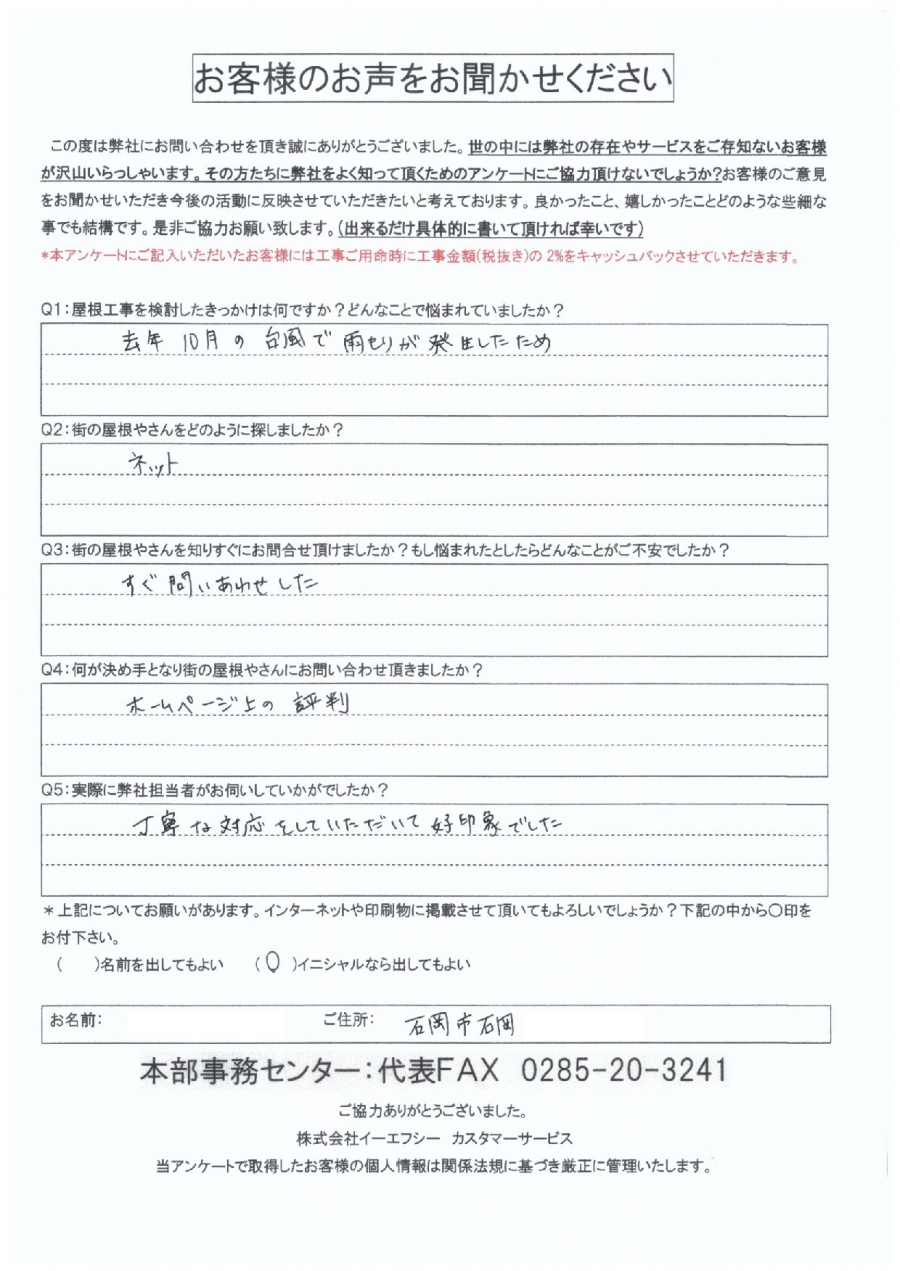 お客様のお声をお聞かせください
この度は弊社にお問い合わせを頂き誠にありがとうございました。世の中には弊社の存在やサービスをご存知ないお客様
が沢山いらっしゃいます。その方たちに弊社をよく知って頂くためのアンケートにご協力頂けないでしょうか?お客様のご意見
をお聞かせいただき今後の活動に反映させていただきたいと考えております。良かったこと、嬉しかったことどのような些細な
事でも結構です。是非ご協力お願い致します。(出来るだけ具体的に書いて頂ければ幸いです)
*本アンケートにご記入いただいたお客様には工事ご用命時に工事金額(税抜き)の 2%をキャッシュバックさせていただきます。
Q1:屋根工事を検討したきっかけは何ですか?どんなことで悩まれていましたか?
去年 10月の 台風で 雨もりが 発生したため
Q2:街の屋根やさんをどのように探しましたか?
ネット
Q3:街の屋根やさんを知りすぐにお問合せ頂けましたか?もし悩まれたとしたらどんなことがご不安でしたか?
すぐ 問いあわせした
Q4:何が決め手となり街の屋根やさんにお問い合わせ頂きましたか?
ホームページ上の 評判
Q5:実際に弊社担当者がお伺いしていかがでしたか?
丁寧な対応をしていただいて 好印象でした
*上記についてお願いがあります。インターネットや印刷物に掲載させて頂いてもよろしいでしょうか?下記の中から〇印を
お付下さい。
(　)名前を出してもよい　(〇)イニシャルなら出してもよい
お名前:　ご住所:　石岡市石岡
本部事務センター:代表FAX 0285-20-3241
ご協力ありがとうございました。
株式会社イーエフシー カスタマーサービス
当アンケートで取得したお客様の個人情報は関係法規に基づき厳正に管理いたします。